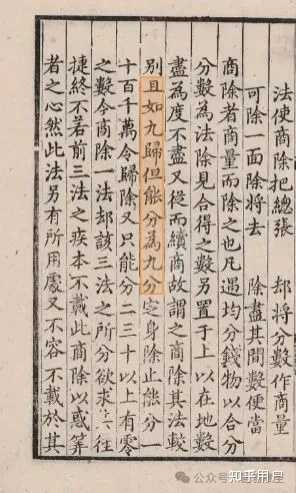 法使商除把總張　却將分數作商量
可除一面除將去　除盡其間數便當
商除者商量而除之也凡遇均分錢物以合分
分數為法除見合得之數另置于上以在地數
盡為度不盡又從而續商故謂之商除其法較
別且如九歸但能分為九分定身除止能分一
十百千萬令歸除又只能分二三十以上有零
之數今商除一法却該三法之所分欲求六往
捷終不若前三法之疾本不載此商除以惑筭
者之心然此法另有所用處又不容不載於其
公众号
知乎用户